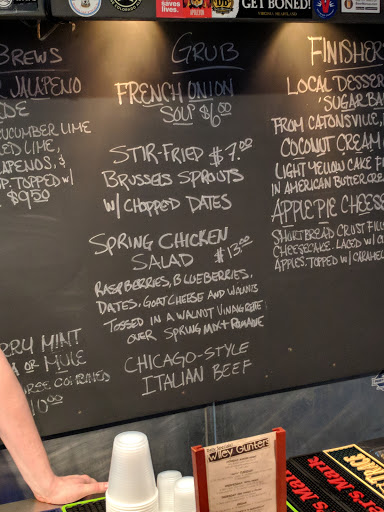 saves lives.
GET BONED!
BREWS
JALAPENO
CUCUMBER LIME
LIME,
& 
TOPPED W/
$9.50
MINT
OR MULE
10.00
GRUB
FRENCH ONION
SOUP $6.00
STIR-FRIED $7.00
BRUSSELS SPROUTS
W/ CHOPPED DATES
SPRING CHICKEN
SALAD $13.00
RASPBERRIES, BLUEBERRIES,
DATES, GOAT CHEESE AND WALNUTS
TOSSED IN A WALNUT VINAIGRETTE
OVER SPRING MIX + ROMAINE
CHICAGO-STYLE
ITALIAN BEEF
FINISHER
LOCAL DESSER
'SUGAR BA
FROM CATONSVILLE,
COCONUT CREAM
LIGHT YELLOW CAKE
IN AMERICAN BUTTER CRE
APPLE PIE CHEES
SHORTBREAD CRUST FILL
CHEESECAKE. LACED W/
APPLES. TOPPED W/ CARAMEL
Wiley Gunters
Maker's Mark